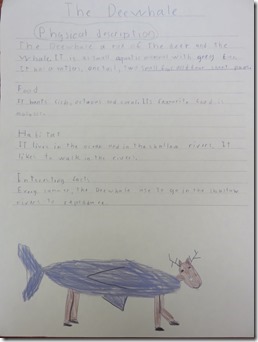 The Deewhale
Physical discription
The Deewhale a mix of the deer and the
Whale. It is a small aquatic animal with grey fur.
It has antlers, one tail, two
Food
It eats fish, and Favorite food is
Habitat
It lives in the ocean and in the shallow rivers. It
likes to walk in the rivers.
Interesting fact
Every summer, the Deewhale use to go in the shallow
rivers to reproduce.